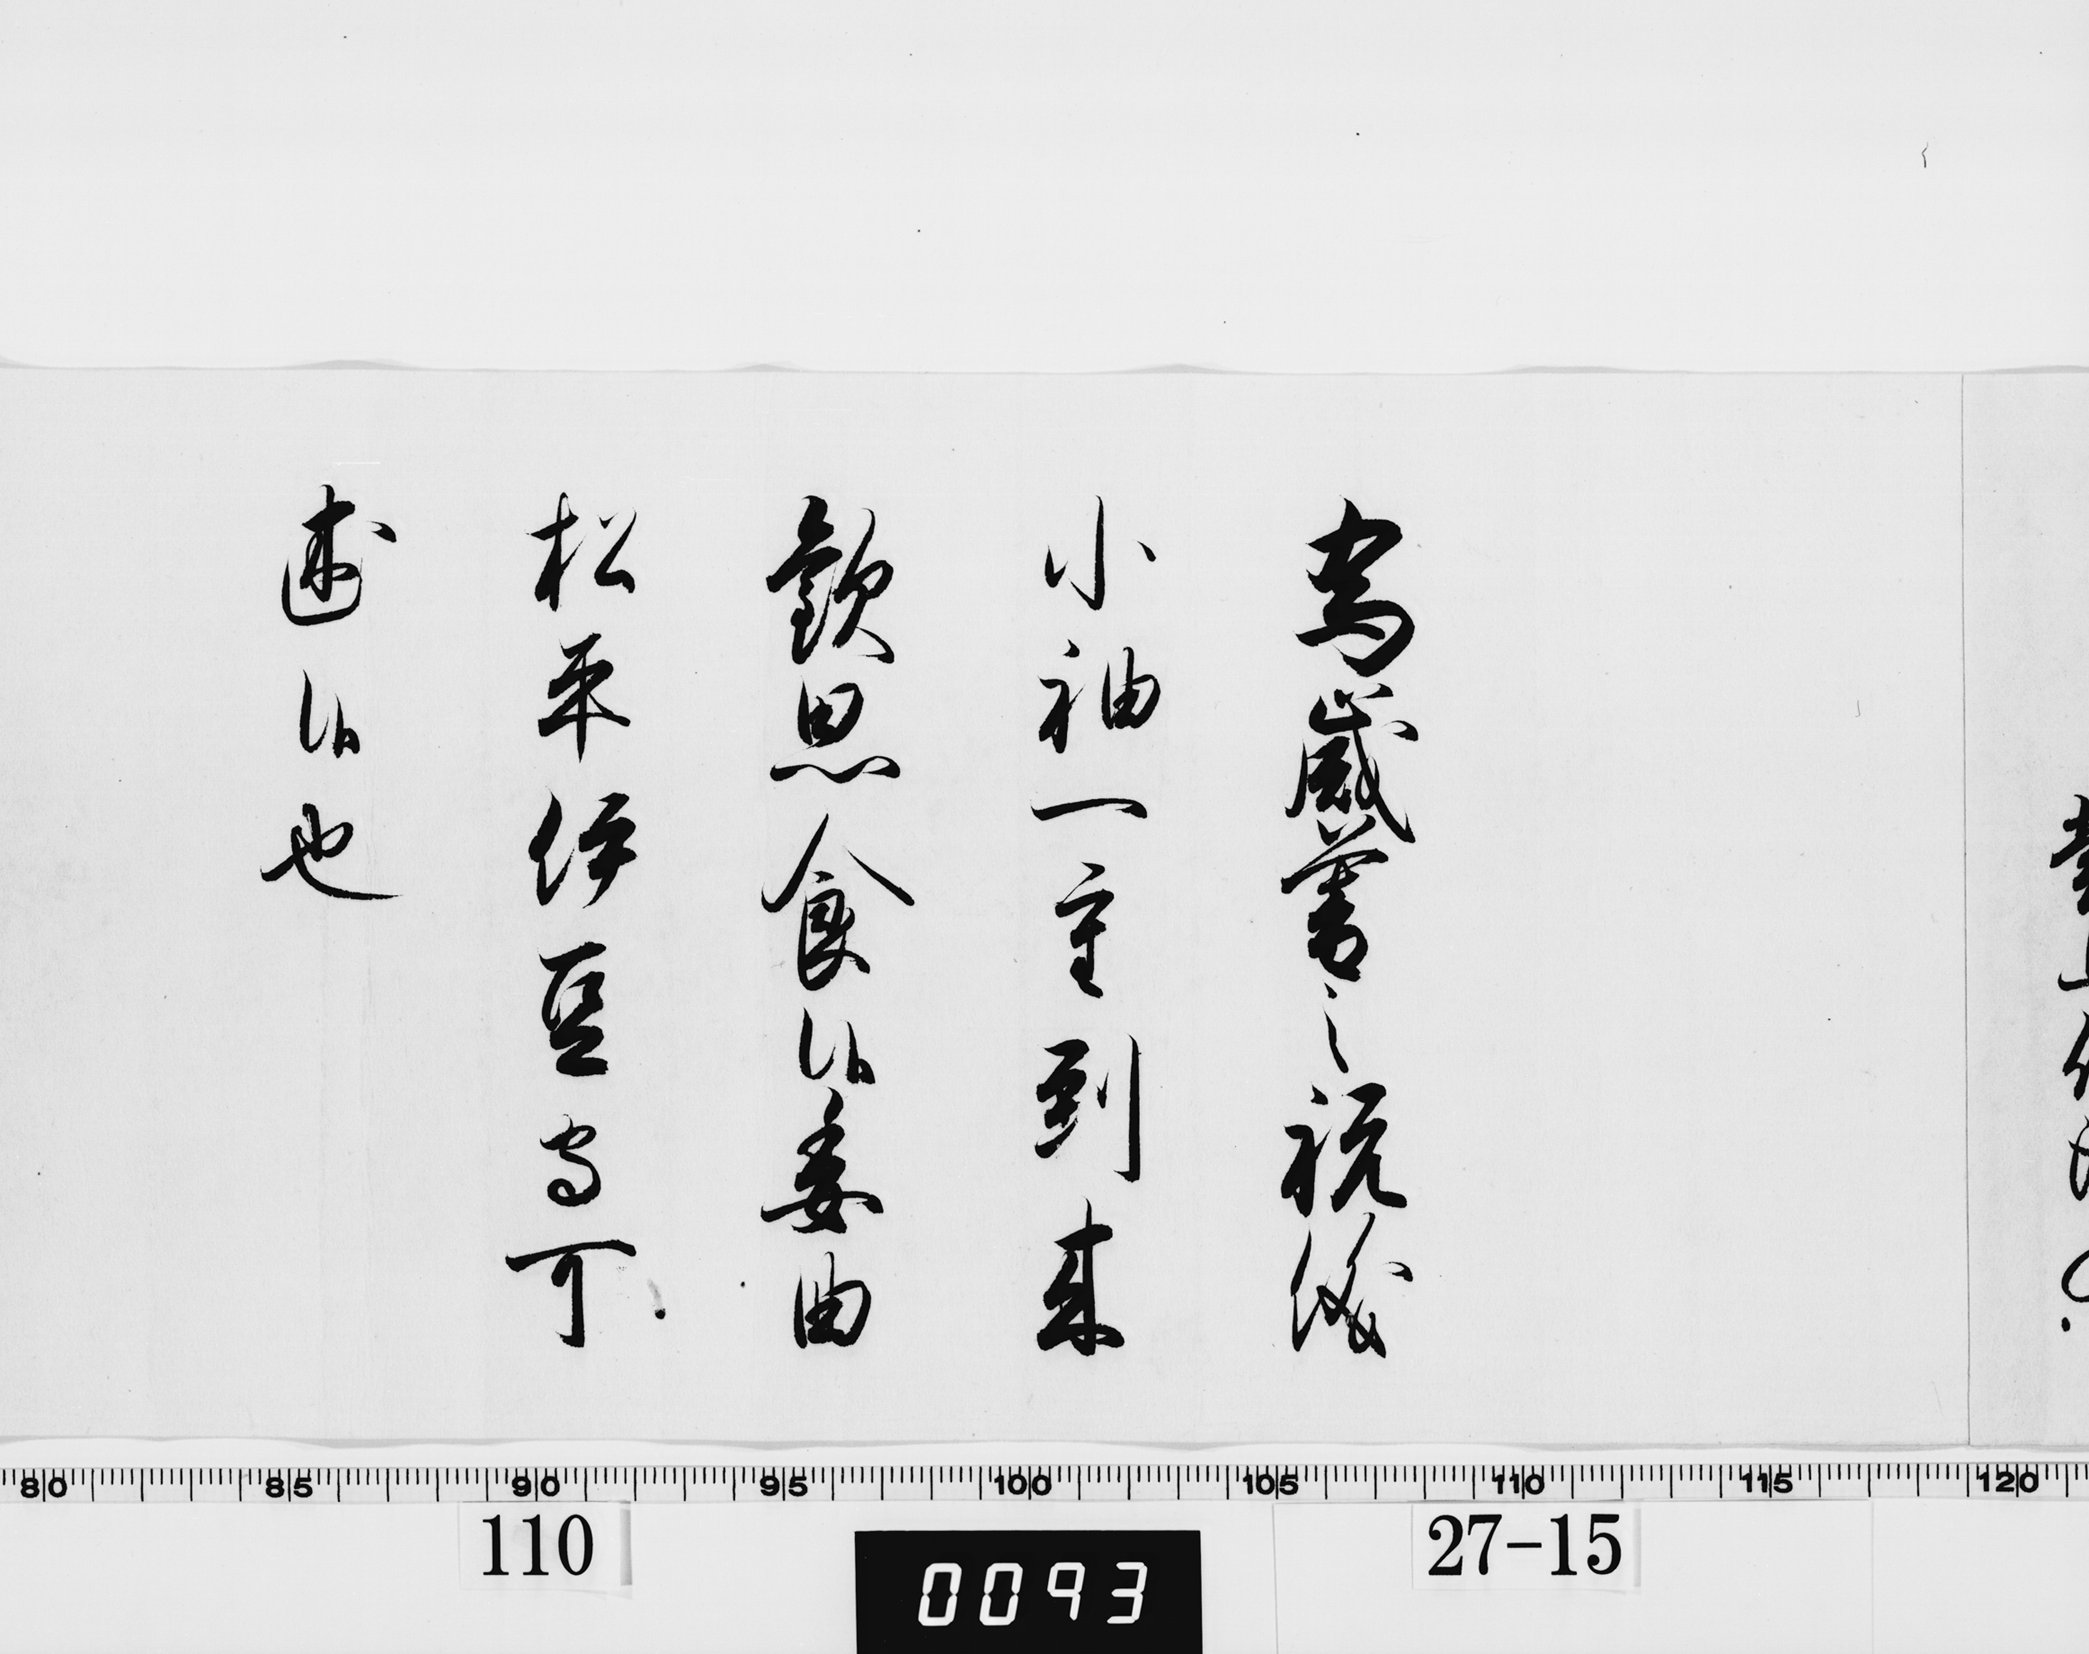 為歳暮之祝儀
小袖一重到来
歓思食候委曲
松平伊豆守可
述候也
80 85 90 95 100 105 110 115 120
110
0093
27-15